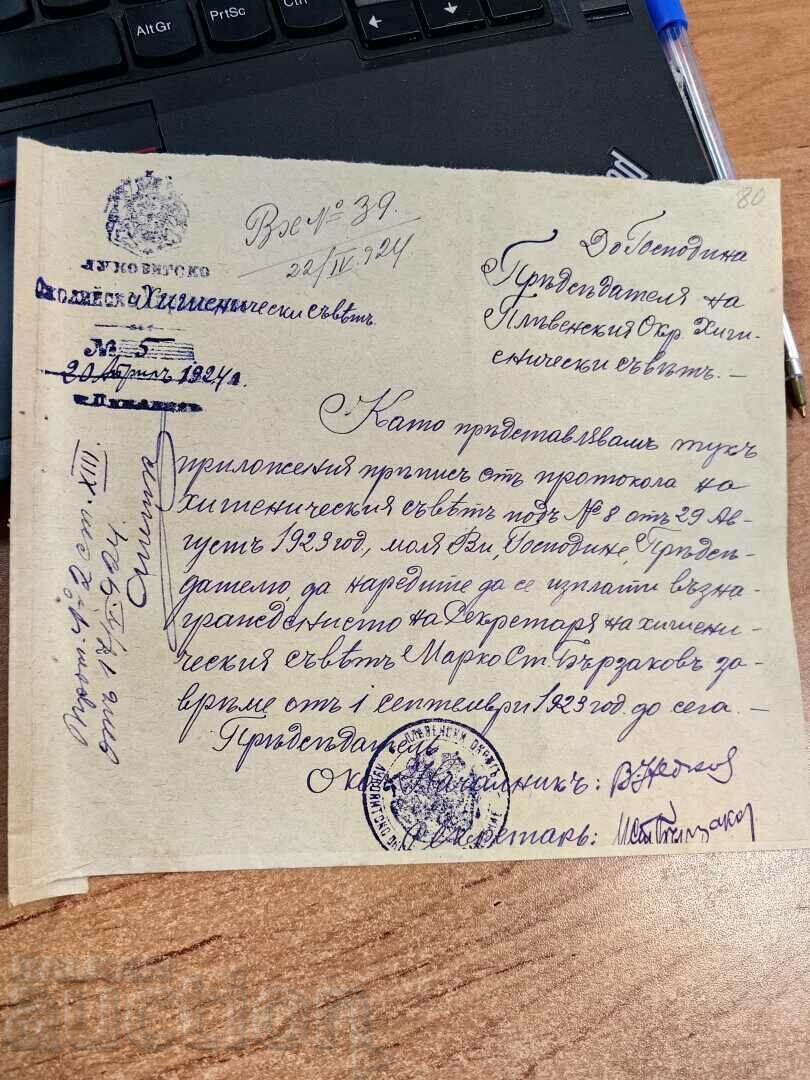 AltGr
PrtSc
Ctrl
80
Вх № 39.
22/IV 924
ЛУКОВИТСКО
ОКОЛИЙСКИ Хигиенически съвѣтъ
№ 5
20 Априлъ 1924 г.
До Господина
Прѣдсѣдателя на
Плѣвенския Окр. Хиги-
енически съвѣтъ. —
Като прѣдставлявамъ тукъ
приложения прѣписъ отъ протокола на
хигиеническия съвѣтъ подъ № 8 отъ 29 Ав-
густъ 1923 год., моля Ви, Господине, Прѣдсѣ-
дателю, да наредите да се изплати възна-
граждението на Секретаря на хигиени-
ческия съвѣтъ Марко Ст. Бързаковъ за
врѣме отъ 1 септември 1923 год. до сега. —
Прѣдсѣдатель
Окол. Началникъ:
Секретарь:
Прот. № 2 ст. XIII.
отъ 17/V 924
ПЛѢВЕНСКИ ОКРѪГЪ
auction